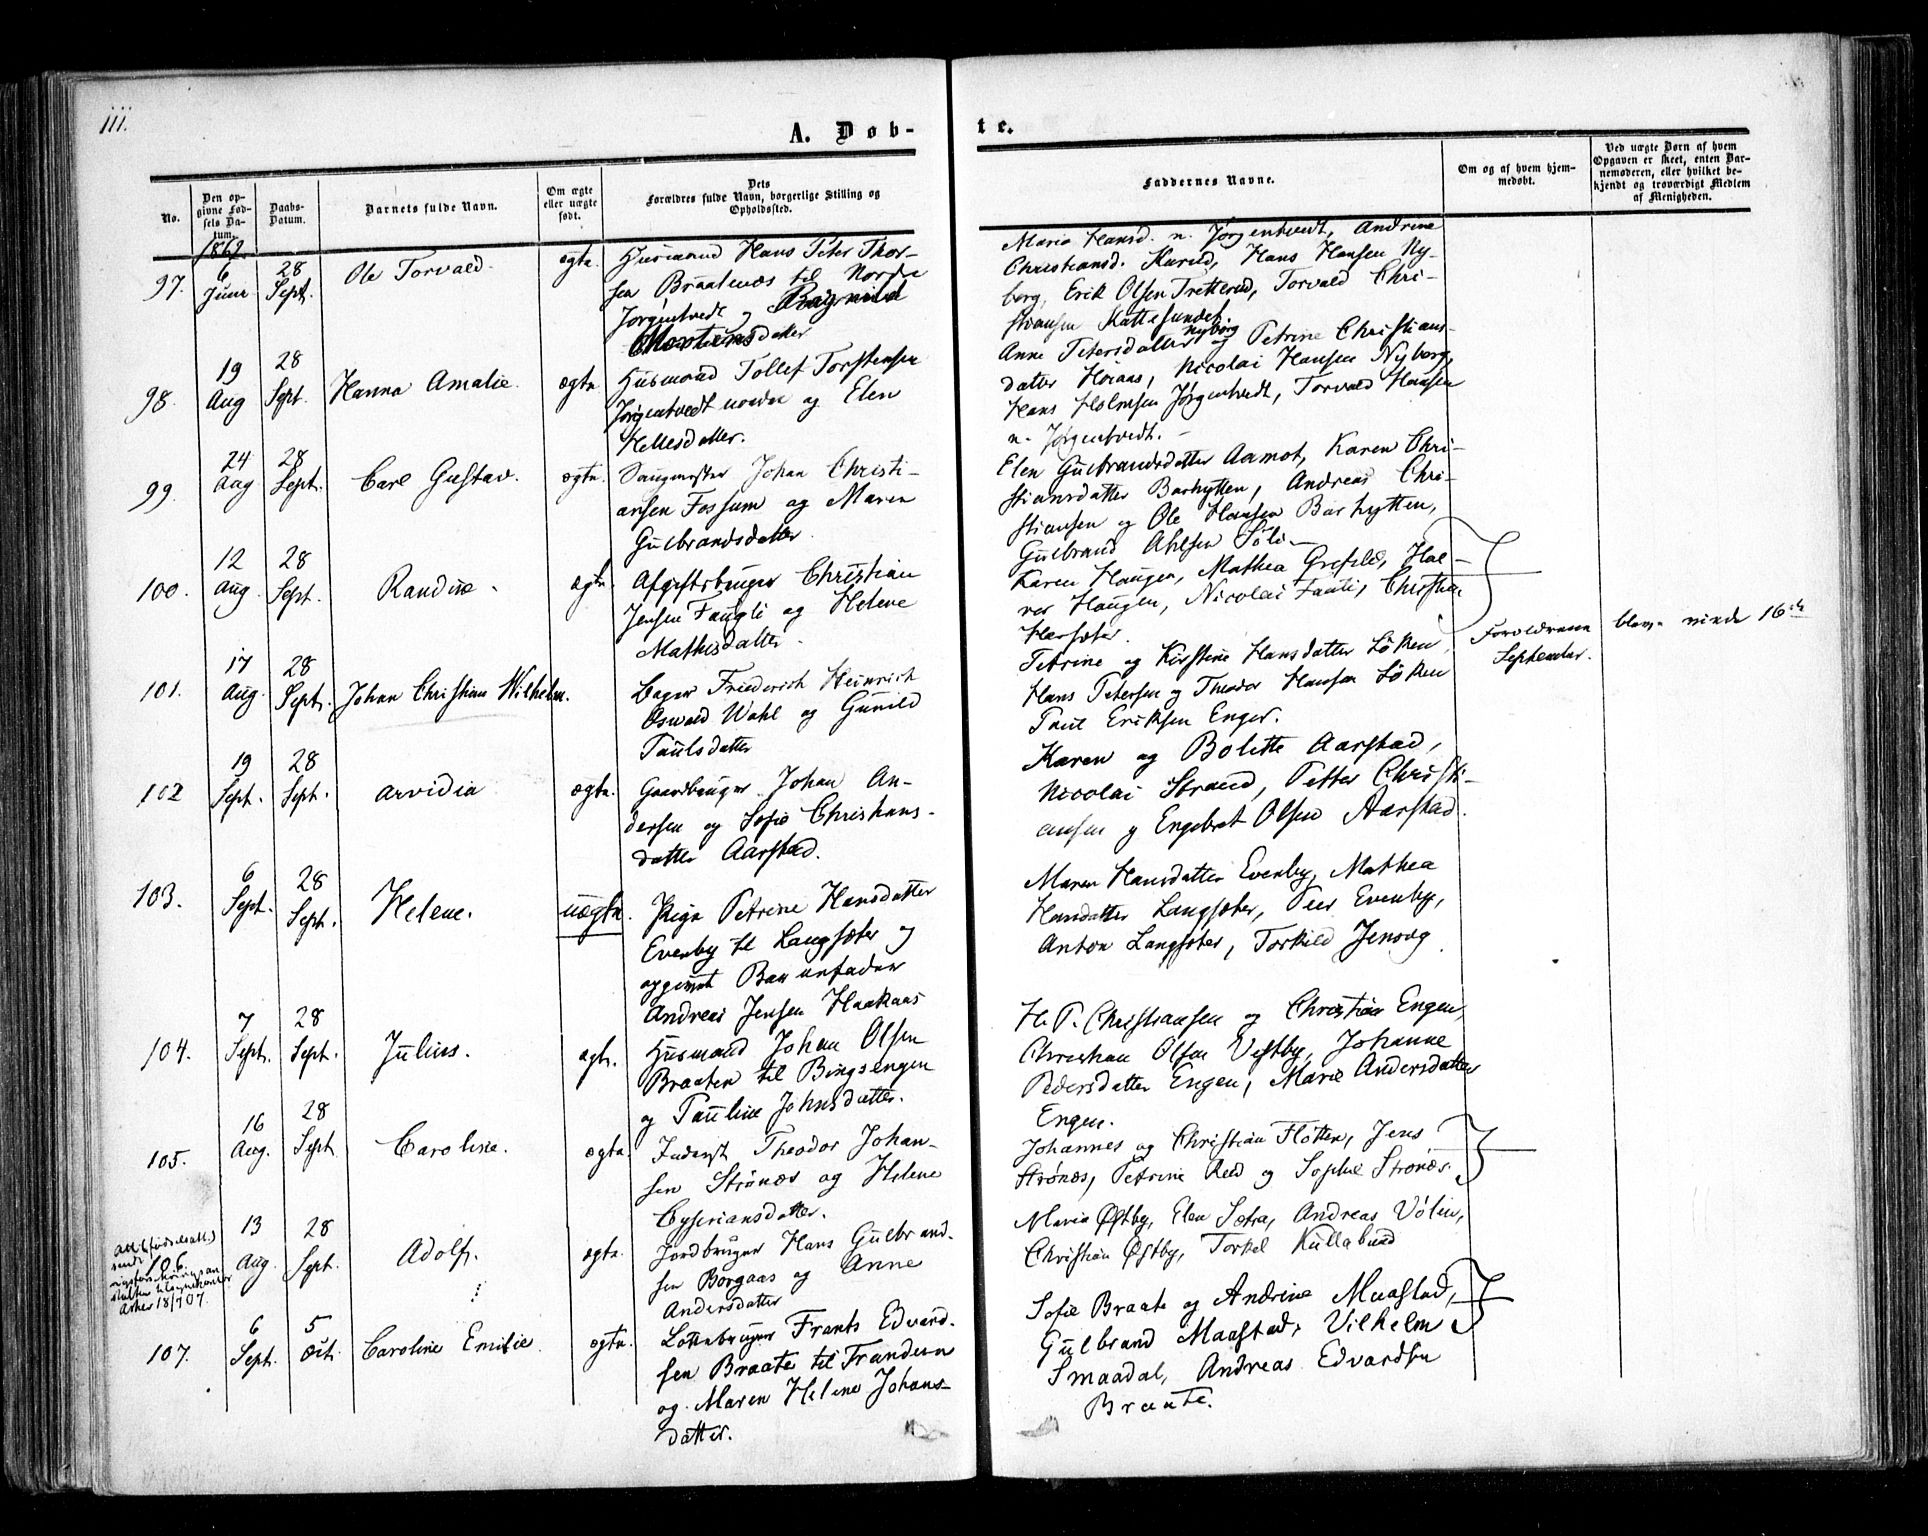 iii.
A. Døb-
te.
No.
Den op-
givne Fød-
sels Da-
tum.
Daabs-
Datum.
Barnets fulde Navn.
Om ægte
eller uægte
født.
Dets
Forældres fulde Navn, borgerlige Stilling og
Opholdssted.
Faddernes Navne.
Om og af hvem hjem-
medøbt.
Ved uægte Børn af hvem
Opgaven er skeet, enten Bar-
nemoderen, eller hvilket be-
kjendt og troværdigt Medlem
af Menigheden.
1862.
97. 6 Juni 28 Sept. Ole Torvald. ægte.
Husmand Hans Peter Thor-
sen Braatenæs til Nordre
Jørgentvedt og Ragnild
Mortensdatter
Maria Hansd. n. Jørgentvedt, Andrine
Christiansd. Hans Hansen Ny-
borg, Erik Olsen Tretterud, Torvald Chri-
stiansen Kattesundet
98. 19 Aug 28 Sept. Hanna Amalie. ægte.
Husmand Tollef Torstensen
Jørgentvedt nordre og Elen
Hellesdatter.
Anne Petersdatter Nyborg og Petrine Christians-
datter Horaas, Nicolai Hansen Nyborg,
Hans Holmsen Jørgentvedt, Torvald Hansen
n. Jørgentvedt. -
99. 24 Aug 28 Sept. Carl Gustav. ægte.
Saugmester Johan Christi-
ansen Fossum og Maren
Gulbrandsdatter.
Elen Gulbrandsdatter Aamot, Karen Chri-
stiansdatter Barhytten, Andreas Chri-
stiansen og Ole Hansen Barhytten,
Gulbrand Ahlsen Sóli -
100. 12 Aug. 28 Sept. Randine. ægte
Afgiftsbruger Christian
Jensen Faugli og Helene
Mathisdatter.
Karen Haugen, Mathea Grefsli, Hal-
vor Haugen, Nicolai Fauli, Christian
Hersæter.
101. 17 Aug. 28 Sept. Johan Christian Wilhelm.
Bager Friederich Heinrich
Oswald Wahl og Gunild
Paulsdatter
Petrine og Kirstine Hansdatter Løken,
Hans Petersen og Theodor Hansen Løken
Paul Eriksen Enger.
Forældrene blev viede 16de
September.
102 19 Sept. 28 Sept. Arvidia ægte.
Gaardbruger Johan An-
dersen og Sofie Christians-
datter Aarstad.
Karen og Bolette Aarstad,
Nicolai Strand, Petter Christi-
ansen og Engebret Olsen Aarstad.
103. 6 Sept. 28 Sept. Helene. uægte.
Pige Petrine Hansdatter
Evenby til Langsæter og
opgivet Barnefader
Andreas Jensen Haakaas
Maren Hansdatter Evenby, Mathea
Hansdatter Langsæter, Peer Evenby,
Anton Langsæter, Torkild
104. 7 Sept. 28 Sept. Julius. ægte.
Husmand Johan Olsen
Braaten til Bingsengen
og Pauline Johnsdatter.
H. P. Christiansen og Christian Engen,
Christian Olsen Vestby, Johanne
Pedersdatter Engen, Marie Andersdatter
Engen.
105. 16 Aug. 28 Sept Caroline. ægte
Inderst Theodor Johan-
sen Strønæs og Helene
Cyseriansdatter.
Johannes og Christian Flotten, Jens
Strønæs, Petrine Rud og Sophie Strønæs.
106. 13 Aug. 28 Sept. Adolf. ægte.
Jordbruger Hans Gulbrand-
sen Borgaas og Anne
Andersdatter
Maria Østby, Elen Sætra, Andreas Vólen,
Christian Østby, Torkel Kullebund
Att. (fødselsatt.)
sendt
Asker 18/7 07.
107. 6 Sept. 5 Oct. Caroline Emilie. ægte.
Lottenbruger Frants Edvard-
sen Braate til Tranderu
og Maren Heline Johans-
datter.
Sofie Braate og Andrine Maastad,
Gulbrand Maastad, Vilhelm
Smaadal, Andreas Edvardsen
Braate.